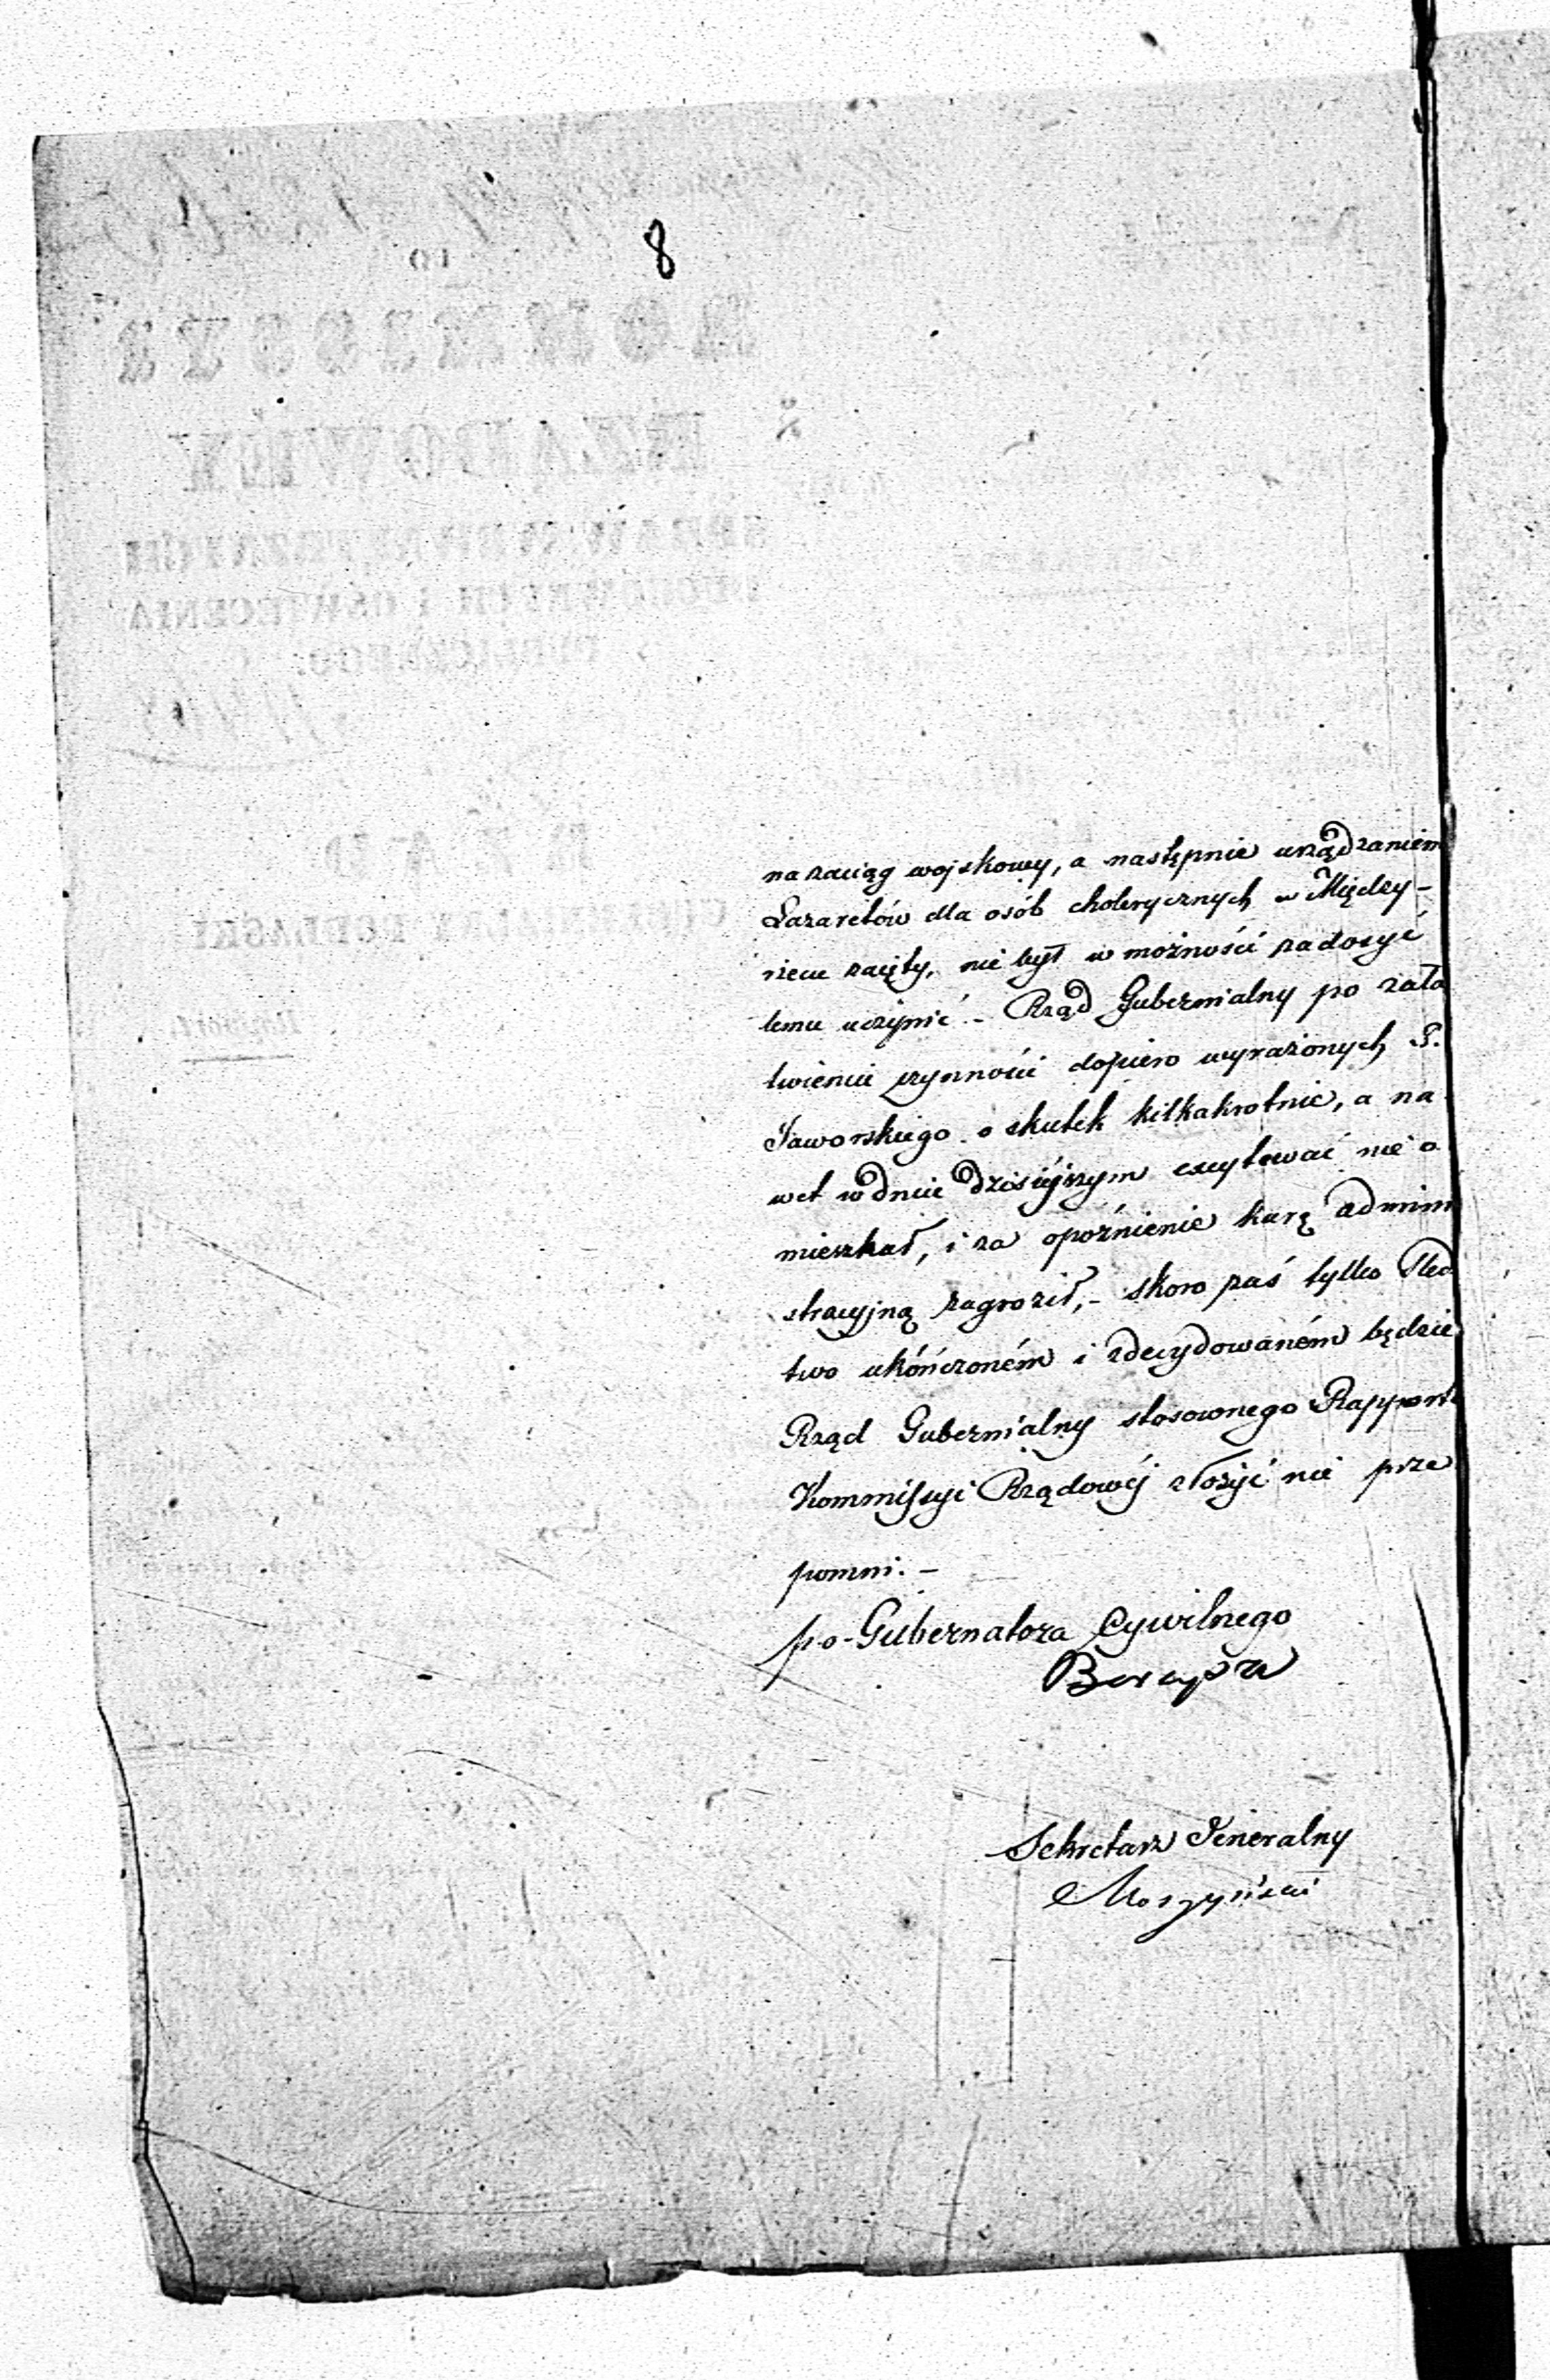 8
na zaciąg wojskowy, a następnie urządzaniem
Lazaretów dla osób cholerycznych w Między-
rzecu zajęty, nie był w możności zadosyć
temu uczynić. - Rząd Gubernialny po zała
twieniu czynności dopiero wyrażonych P.
Jaworskiego o skutek kilkakrotnie, a na
wet w dniu dzisiéjszym excytować nie o
mieszkał, i za opóźnienie karą admini
stracyjną zagroził, - skoro zaś tylko Sledz
two ukończoném i zdecydowaném będzie
Rząd Gubernialny stosownego Rapportu
Kommissyi Rządowéj złożyć nie prze
pomni. -
p.o. Gubernatora Cywilnego
Sekretarz Jeneralny